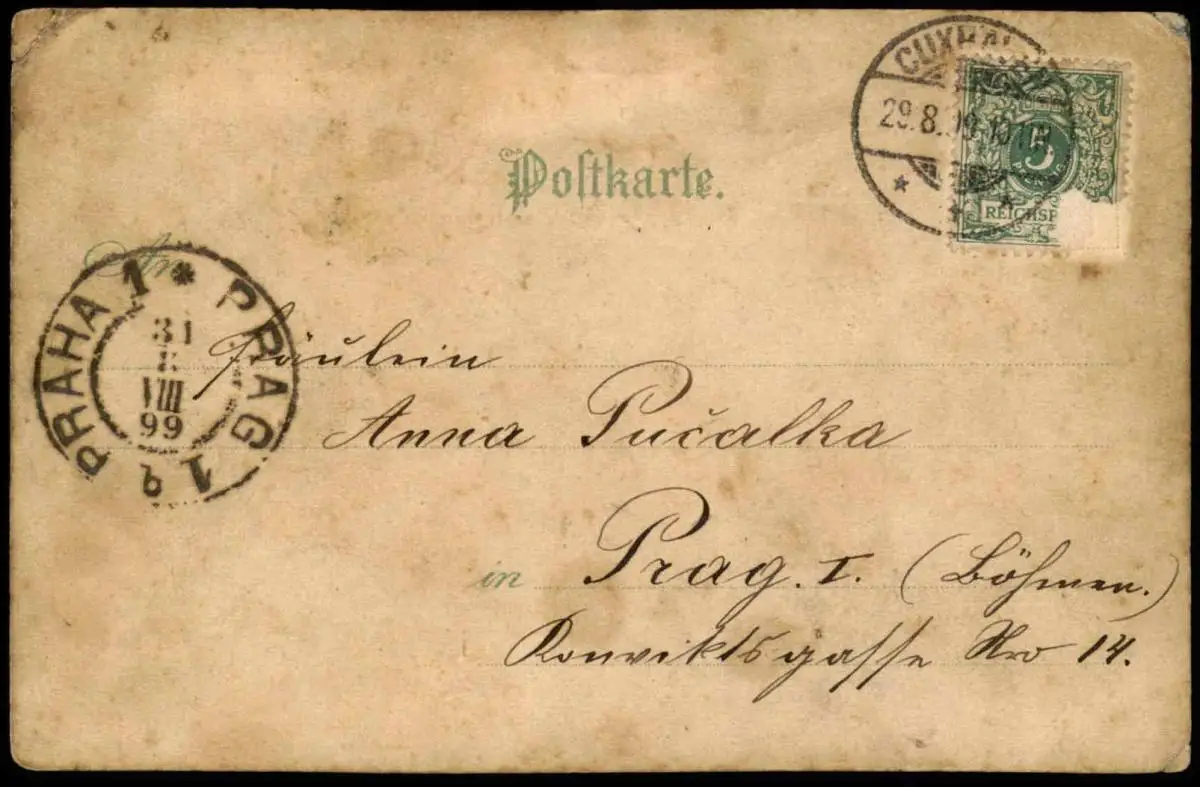 Postkarte.
CUXHA
29.8.99.10
5
REICHSP
An
PRAHA 1 * PRAG 1
31
VIII
99
Fräulein
Anna Pučalka
in Prag. I. (Böhmen.)
Konviktsgasse Nro 14.